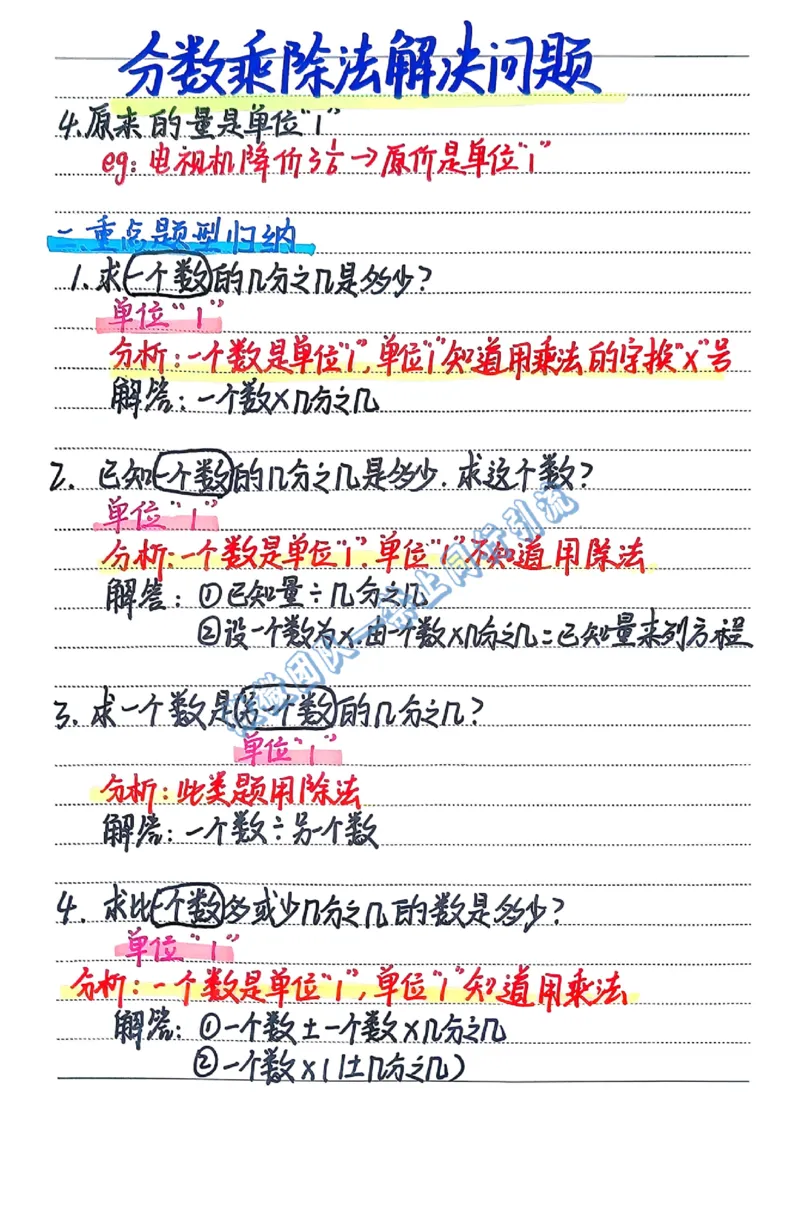 分数乘除法解决问题
4.原来的量是单位"1"
eg:电视机降价了1/6→原价是单位"1"
二.重点题型归纳
1.求一个数的几分之几是多少?
单位"1"
分析:一个数是单位"1",单位"1"知道用乘法的字换"×"号
解答:一个数×几分之几
2.已知一个数的几分之几是多少.求这个数?
单位"1"
分析:一个数是单位"1".单位"1"不知道用除法
解答:①已知量÷几分之几
②设一个数为x.由一个数×几分之几=已知量来列方程
3.求一个数是另一个数的几分之几?
单位"1"
分析:此类题用除法
解答:一个数÷另一个数
4.求比一个数多或少几分之几的数是多少?
单位"1"
分析:一个数是单位"1",单位"1"知道用乘法
解答:①一个数±一个数×几分之几
②一个数×(1±几分之几)
团队—禁止同行引流